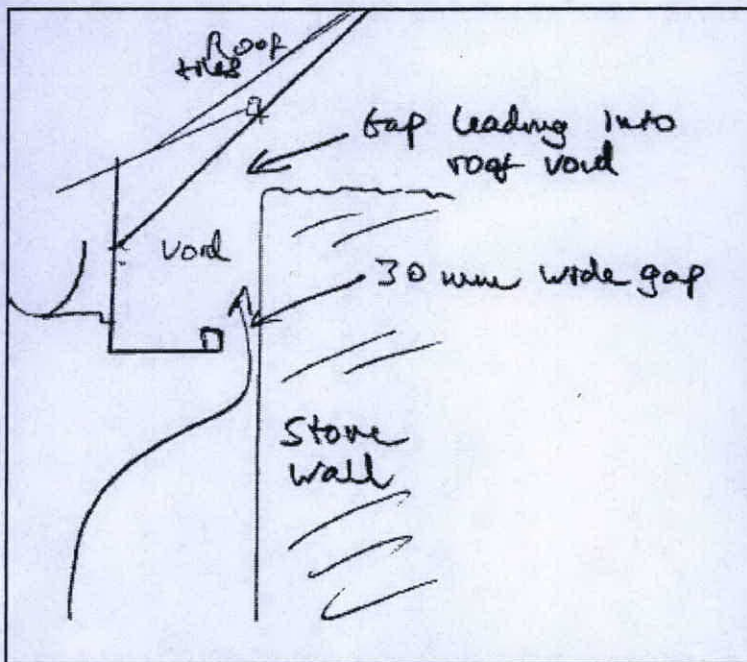 Roof
tiles
Gap leading into
roof void
void
30 mm wide gap
Stone
wall